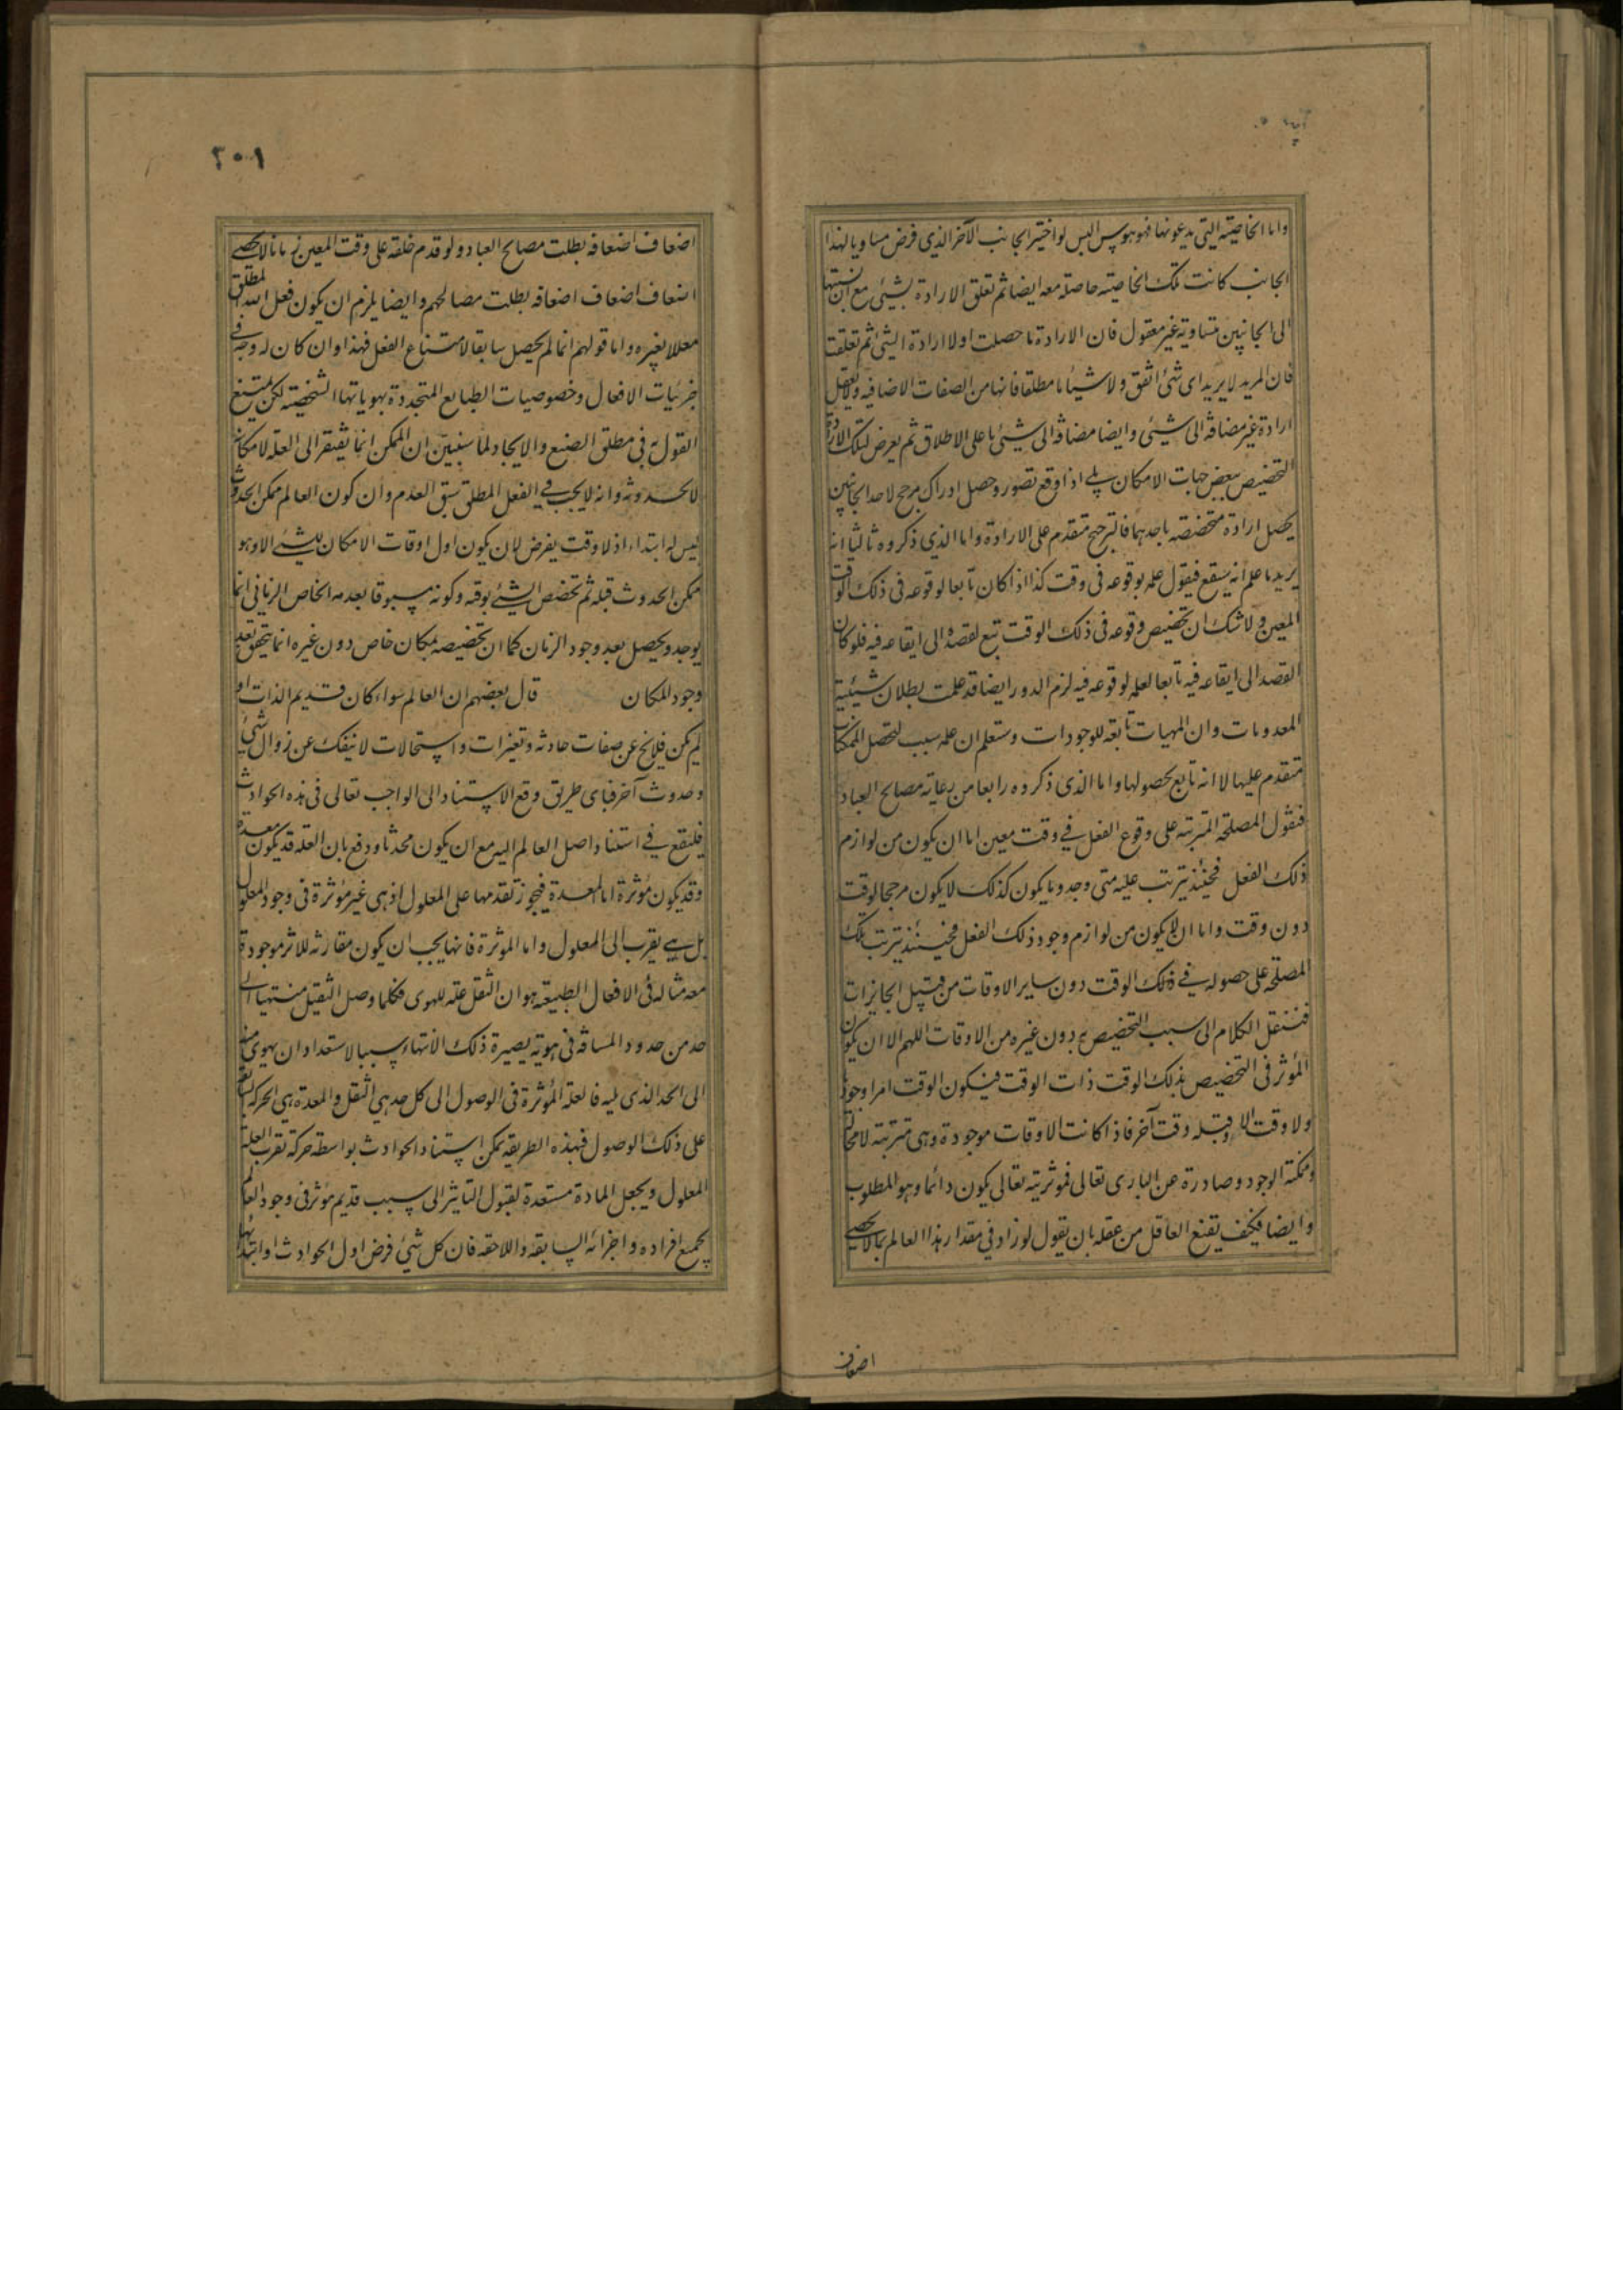 واما الخاصية التي يدعونها فهو هوس اليس لو اختير الجانب الآخر الذي فرض مساويا لهذا
الجانب كانت تلك الخاصية حاصلة معه ايضا ثم تعلق الارادة بشيئ مع ان نسبتها
الى الجانبين متساوية غير معقول فان الارادة ما حصلت اولا ارادة الشئ ثم تعلقت
فان المريد لا يريد اى شئ اتفق ولا شيئا ما مطلقا فانها من الصفات الاضافيه ولا يعقل
ارادة غير مضافة الى شيئ وايضا مضافة الى شيئ ما على الاطلاق ثم يعرض لتلك الارادة
التخصيص ببعض جهات الامكان بلى اذا وقع تصور وحصل ادراك مرجح لاحد الجانبين
يحصل ارادة متخصصة باحدهما فالترجح متقدم على الارادة واما الذي ذكروه ثالثا انه
يريد ما علم انه سيقع فيقول علمه بوقوعه فى وقت كذا اذا كان تابعا لوقوعه فى ذلك الوقت
المعين ولا شك ان تخصيص وقوعه فى ذلك الوقت تبع لقصده الى ايقاعه فيه فلو كان
القصد الى ايقاعه فيه تابعا لعلمه لوقوعه فيه لزم الدور ايضا قد علمت بطلان شيئية
المعدومات وان المهيات تابعة للوجودات وستعلم ان علمه سبب لتحصل الممكنات
متقدم عليها لا انه تابع لحصولها واما الذى ذكروه رابعا من رعاية مصالح العباد
فنقول المصلحة المترتبة على وقوع الفعل فى وقت معين اما ان يكون من لوازم
ذلك الفعل فحينئذ يترتب عليه متى وجد وما يكون كذلك لا يكون مرجحا لوقت
دون وقت واما ان لا يكون من لوازم وجود ذلك الفعل فحينئذ يترتب تلك
المصلحة على حصوله فى ذلك الوقت دون ساير الاوقات من قبيل الجايزات
فننقل الكلام الى سبب التخصيص به دون غيره من الاوقات اللهم الا ان يكون
المؤثر فى التخصيص بذلك الوقت ذات الوقت فيكون الوقت امرا وجوديا
ولا وقت الا وقبله وقت آخر فاذا كانت الاوقات موجودة وهى مترتبة لا محالة
وممكنة الوجود وصادرة عن البارى تعالى فموثريته تعالى يكون دائما وهو المطلوب
وايضا فكيف يقنع العاقل من عقله بان يقول لو زاد في مقدار هذا العالم بما لا يحصى
اضعاف
٢٠١
اضعاف اضعافه بطلت مصالح العباد ولو قدم خلقه على وقت المعين زمانا لا يحصى
اضعاف اضعاف اضعافه بطلت مصالحهم وايضا يلزم ان يكون فعل الله المطلق
معللا بغيره واما قولهم انما لم يحصل سابقا لامتناع الفعل فهذا وان كان له وجه في
جزئيات الافعال وخصوصيات الطبايع المتجددة بهوياتها الشخصية لكن يمتنع
القول به فى مطلق الصنع والايجاد لما سنبين ان الممكن انما يفتقر الى العلة لامكانه
لا لحدوثه وانه لا يجب في الفعل المطلق سبق العدم وان كون العالم ممكن الحدوث
ليس له ابتداء اذ لا وقت يفرض لان يكون اول اوقات الامكان لشئ الا وهو
ممكن الحدوث قبله ثم تخصص الشئ بوقته وكونه مسبوقا بعدمه الخاص الزمانى انما
يوجد ويحصل بعد وجود الزمان كما ان تخصيصه بمكان خاص دون غيره انما يتحقق بعد
وجود المكان قال بعضهم ان العالم سواء كان قديم الذات او
لم يكن فلا يخ عن صفات حادثه وتغيرات واستحالات لا ينفك عن زوال شئ
وحدوث آخر فباى طريق وقع الاستناد الى الواجب تعالى فى هذه الحوادث
فليقع في استناد اصل العالم اليه مع ان يكون محدثا ودفع بان العلة قد يكون معدة
وقد يكون مؤثرة اما المعدة فيجوز تقدمها على المعلول اذ هى غير مؤثرة فى وجود المعلول
بل هي يقرب الى المعلول واما المؤثرة فانها يجب ان يكون مقارنة للاثر موجودة
معه مثاله فى الافعال الطبيعية هو ان الثقل علة للهوى فكلما وصل الثقيل منتهيا الى
حد من حدود المسافة فى هويه يصيره ذلك الانتهاء سببا لاستعداد ان يهوى منه
الى الحد الذى يليه فالعلة المؤثرة فى الوصول الى كل حد هي الثقل والمعدة هى الحركة
على ذلك الوصول فبهذه الطريقه يمكن استناد الحوادث بواسطة حركة تقرب العلة
المعلول ويجعل المادة مستعدة لقبول التاثير الى سبب قديم مؤثر فى وجود العالم
بجميع افراده واجزائه السابقه واللاحقه فان كل شئ فرض اول الحوادث او ابتدائها